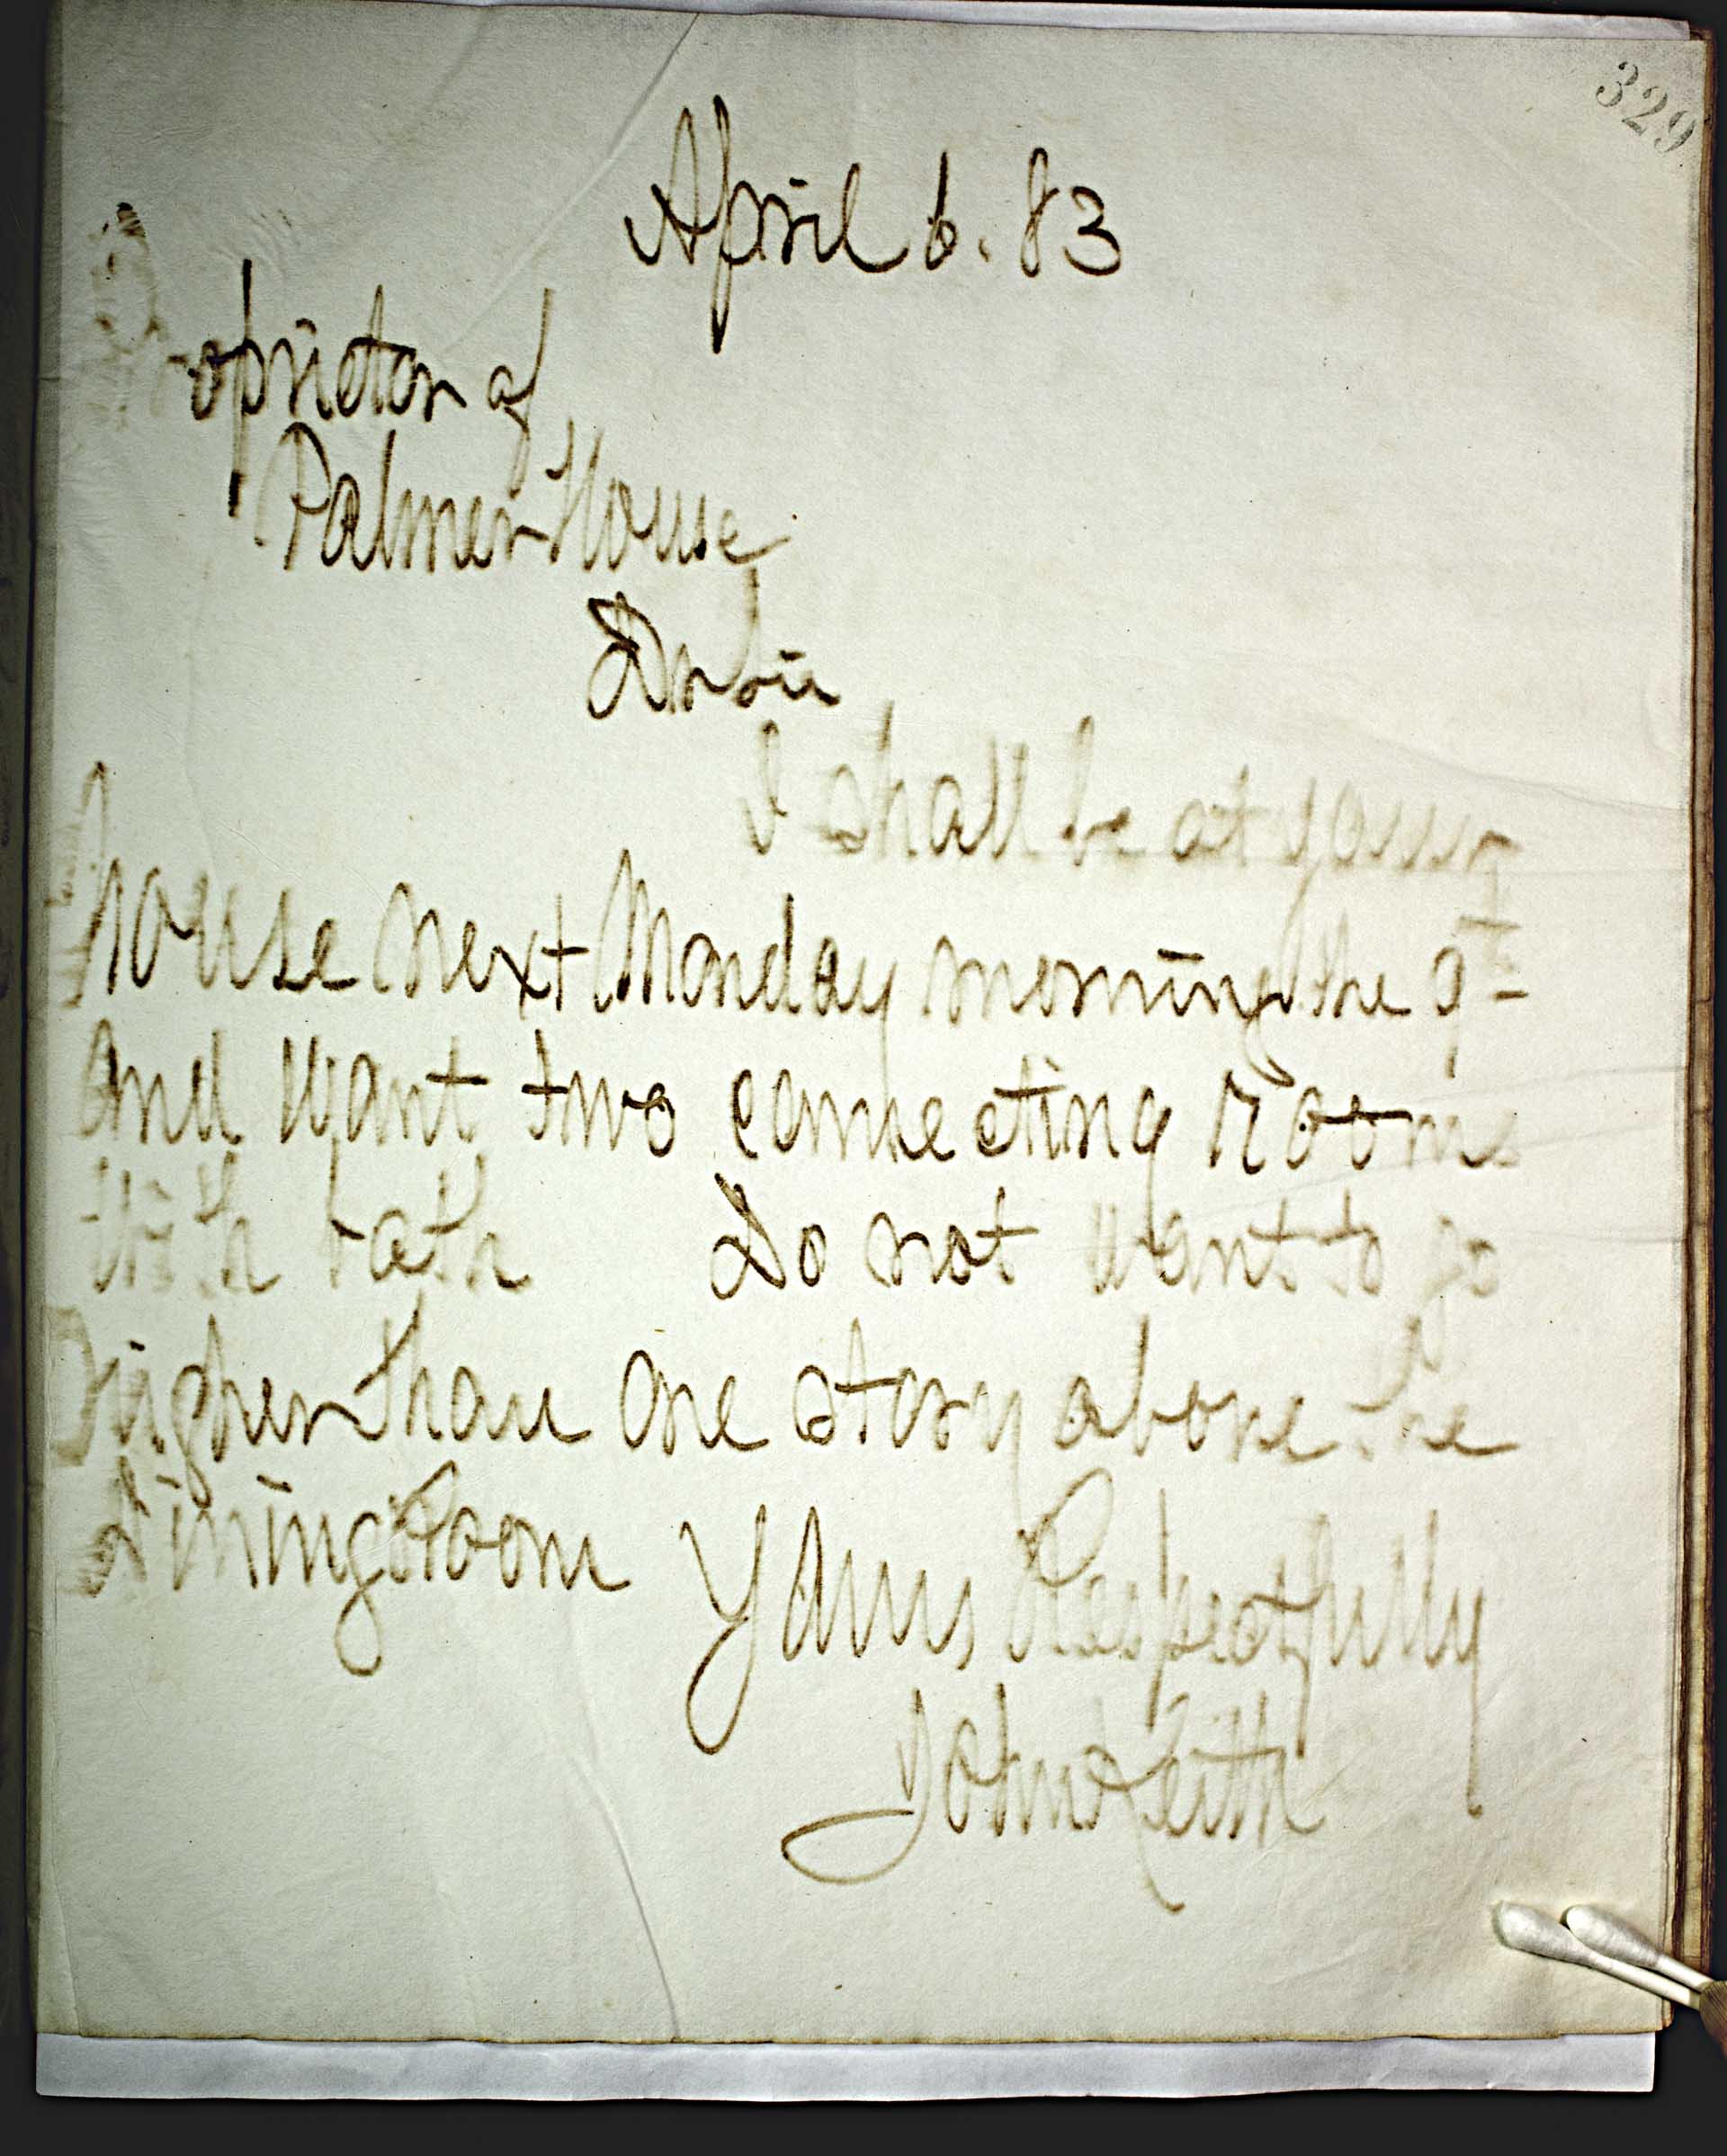 329
April 6. 83
Proprietor of
Palmer House
Dr Sir
I shall be at your
house next Monday morning the 9th
and want two connecting rooms
with bath Do not want to go
higher than one story above the
dining Room Yours Respectfully
John Leith